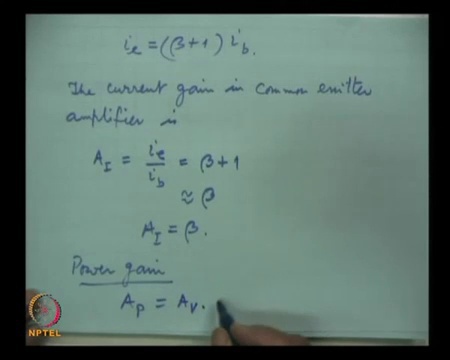 i_e = (β+1) i_b.
The current gain in common emitter
amplifier is
A_I = i_e / i_b = β+1
≈ β
A_I = β.
Power gain
A_p = A_v.
NPTEL